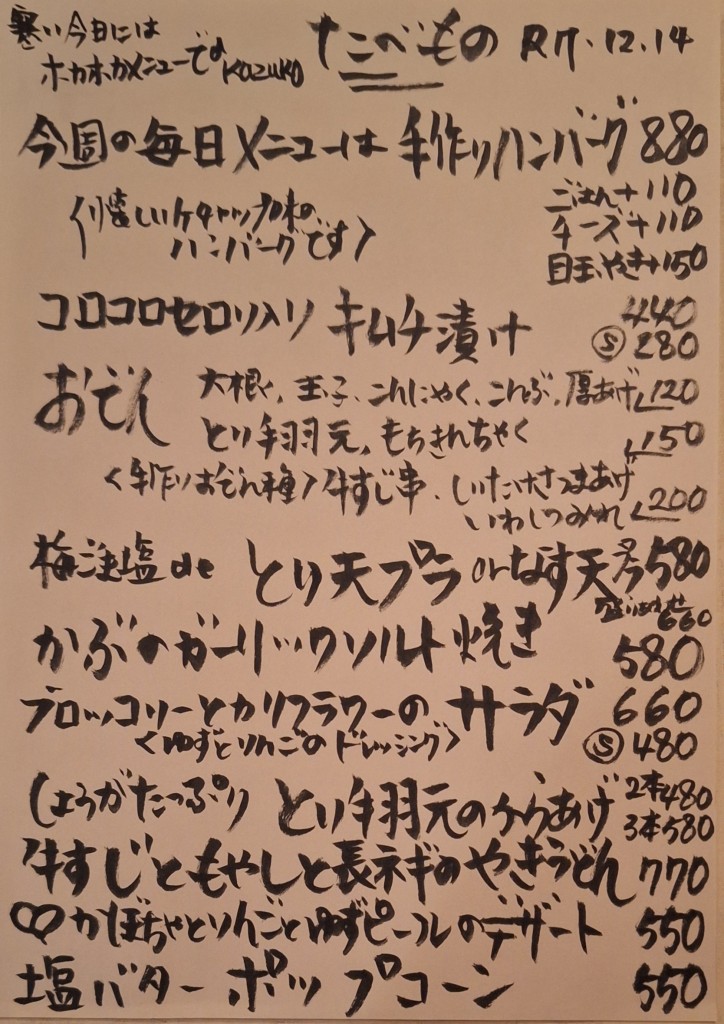 寒い今日には
ホカホカメニューでのKOZUKO
たこべもの R7.12.14
今週の毎日メニューは 手作りハンバーグ 880
〈懐しいケチャップ味の
ハンバーグです〉
ごはん+110
チーズ+110
目玉やき+150
コロコロセロリ入り キムチ漬け 440
Ⓢ 280
おでん 大根、玉子、こんにゃく、こんぶ、厚あげ 120
とり手羽元、もちきんちゃく 150
〈手作りおでん種〉牛すじ串、しいたけさつまあげ
いわしつみれ 200
梅塩 de とり天プラ orなす天 各580
660
かぶのガーリックソルト焼き 580
ブロッコリーとカリフラワーの サラダ 660
〈ゆずとりんごのドレッシング〉 Ⓢ 480
しょうがたっぷり とり手羽元のからあげ 2本480
3本580
牛すじともやしと長ネギのやきうどん 770
♡かぼちゃとりんごとゆずピールのデザート 550
塩バターポップコーン 550